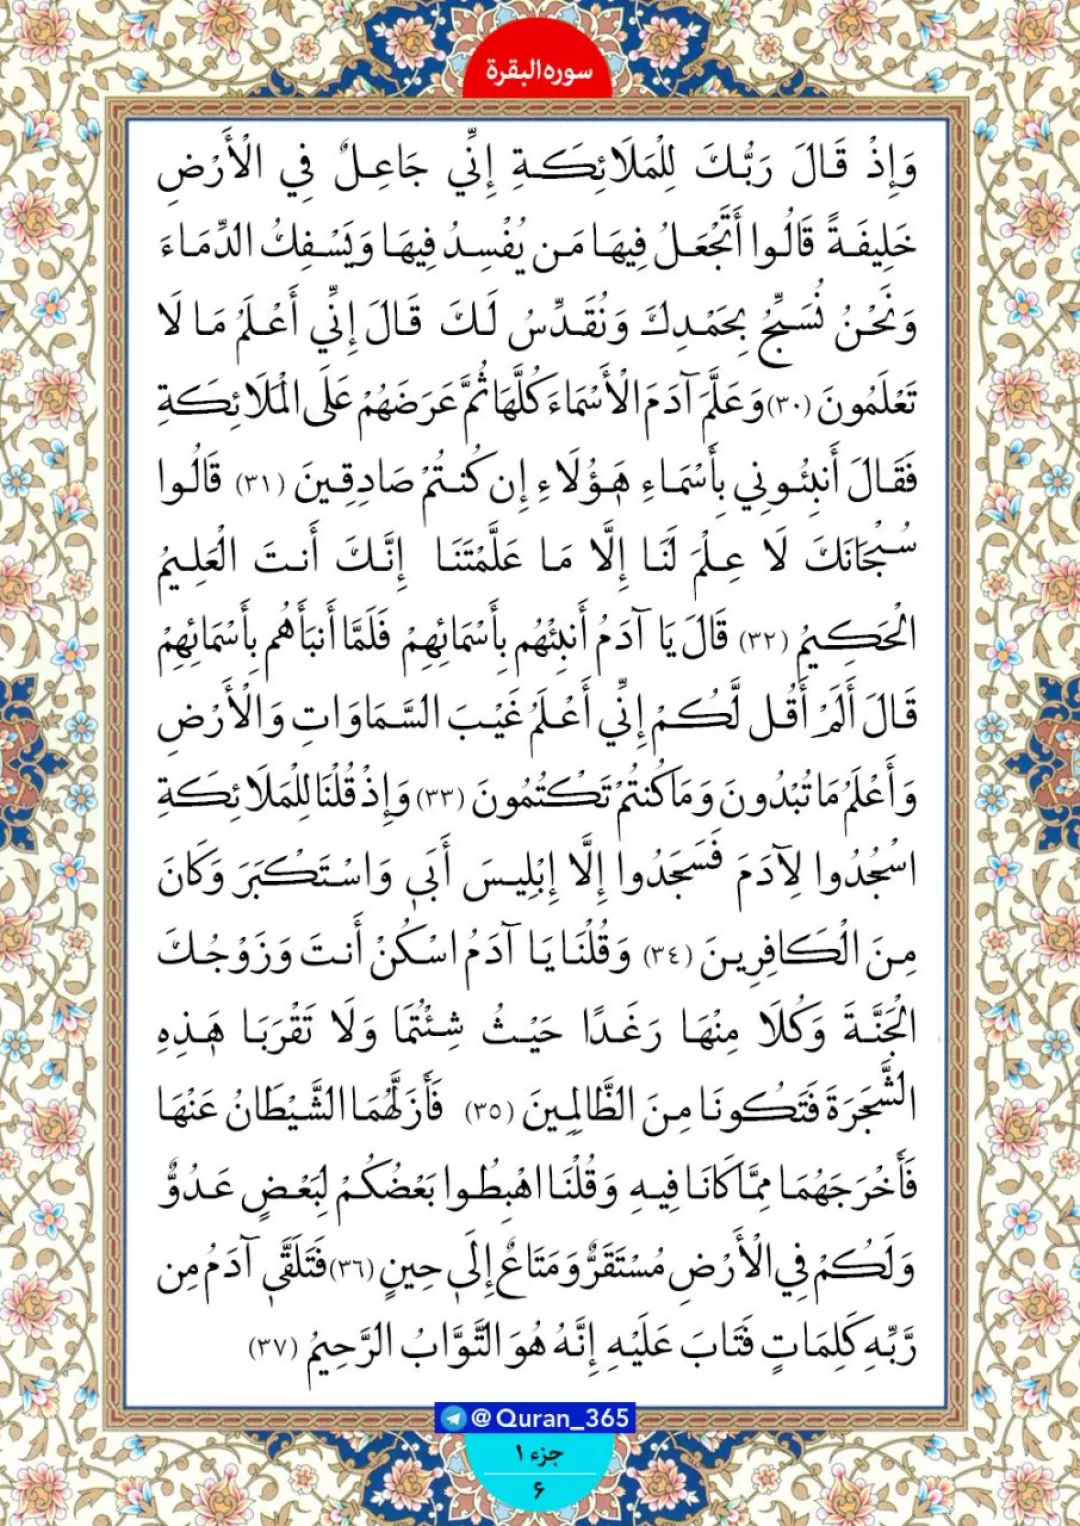 سوره البقرة
وَإِذْ قَالَ رَبُّكَ لِلْمَلَائِكَةِ إِنِّي جَاعِلٌ فِي الْأَرْضِ
خَلِيفَةً قَالُوا أَتَجْعَلُ فِيهَا مَن يُفْسِدُ فِيهَا وَيَسْفِكُ الدِّمَاءَ
وَنَحْنُ نُسَبِّحُ بِحَمْدِكَ وَنُقَدِّسُ لَكَ قَالَ إِنِّي أَعْلَمُ مَا لَا
تَعْلَمُونَ (٣٠) وَعَلَّمَ آدَمَ الْأَسْمَاءَ كُلَّهَا ثُمَّ عَرَضَهُمْ عَلَى الْمَلَائِكَةِ
فَقَالَ أَنبِئُونِي بِأَسْمَاءِ هَٰؤُلَاءِ إِن كُنتُمْ صَادِقِينَ (٣١) قَالُوا
سُبْحَانَكَ لَا عِلْمَ لَنَا إِلَّا مَا عَلَّمْتَنَا إِنَّكَ أَنتَ الْعَلِيمُ
الْحَكِيمُ (٣٢) قَالَ يَا آدَمُ أَنبِئْهُم بِأَسْمَائِهِمْ فَلَمَّا أَنبَأَهُم بِأَسْمَائِهِمْ
قَالَ أَلَمْ أَقُل لَّكُمْ إِنِّي أَعْلَمُ غَيْبَ السَّمَاوَاتِ وَالْأَرْضِ
وَأَعْلَمُ مَا تُبْدُونَ وَمَا كُنتُمْ تَكْتُمُونَ (٣٣) وَإِذْ قُلْنَا لِلْمَلَائِكَةِ
اسْجُدُوا لِآدَمَ فَسَجَدُوا إِلَّا إِبْلِيسَ أَبَىٰ وَاسْتَكْبَرَ وَكَانَ
مِنَ الْكَافِرِينَ (٣٤) وَقُلْنَا يَا آدَمُ اسْكُنْ أَنتَ وَزَوْجُكَ
الْجَنَّةَ وَكُلَا مِنْهَا رَغَدًا حَيْثُ شِئْتُمَا وَلَا تَقْرَبَا هَٰذِهِ
الشَّجَرَةَ فَتَكُونَا مِنَ الظَّالِمِينَ (٣٥) فَأَزَلَّهُمَا الشَّيْطَانُ عَنْهَا
فَأَخْرَجَهُمَا مِمَّا كَانَا فِيهِ وَقُلْنَا اهْبِطُوا بَعْضُكُمْ لِبَعْضٍ عَدُوٌّ
وَلَكُمْ فِي الْأَرْضِ مُسْتَقَرٌّ وَمَتَاعٌ إِلَىٰ حِينٍ (٣٦) فَتَلَقَّىٰ آدَمُ مِن
رَّبِّهِ كَلِمَاتٍ فَتَابَ عَلَيْهِ إِنَّهُ هُوَ التَّوَّابُ الرَّحِيمُ (٣٧)
@Quran_365
جزء ١
۶